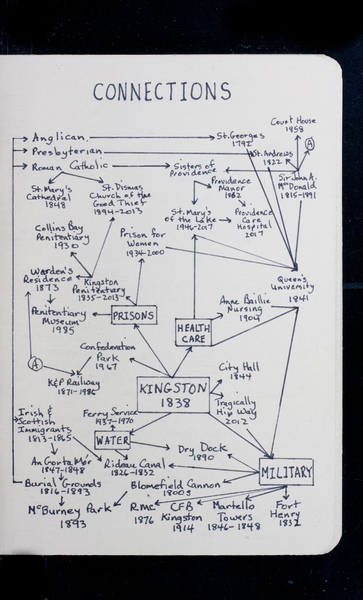 CONNECTIONS
Court House
1858
Anglican
St. Georges
1792
A
Presbyterian
St. Andrews
1822
Roman Catholic
Sisters of
Providence
Sir John A.
McDonald
1815-1891
St. Mary's
Cathedral
1848
St. Dismas
Church of the
Good Thief
1894-2013
Providence
Manor
1962
St. Mary's
of the Lake
1946-2017
Providence
Care
Hospital
2017
Collins Bay
Penitentiary
1930
Prison for
Women
1934-2000
Warden's
Residence
1873
Kingston
Penitentiary
1835-2013
Queen's
University
1841
Penitentiary
Museum
1985
PRISONS
Anne Baillie
Nursing
1904
HEALTH
CARE
Confederation
Park
1967
A
K&P Railway
1871-1986
City Hall
1844
KINGSTON
1838
Tragically
Hip Way
2012
Irish &
Scottish
Immigrants
1813-1865
Ferry Service
1937-1970
WATER
Dry Dock
1890
An Gorta Mór
1847-1848
Rideau Canal
1826-1832
MILITARY
Burial Grounds
1816-1893
Blomefield Cannon
1800s
McBurney Park
1893
RMC
1876
CFB
Kingston
1914
Martello
Towers
1846-1848
Fort
Henry
1832